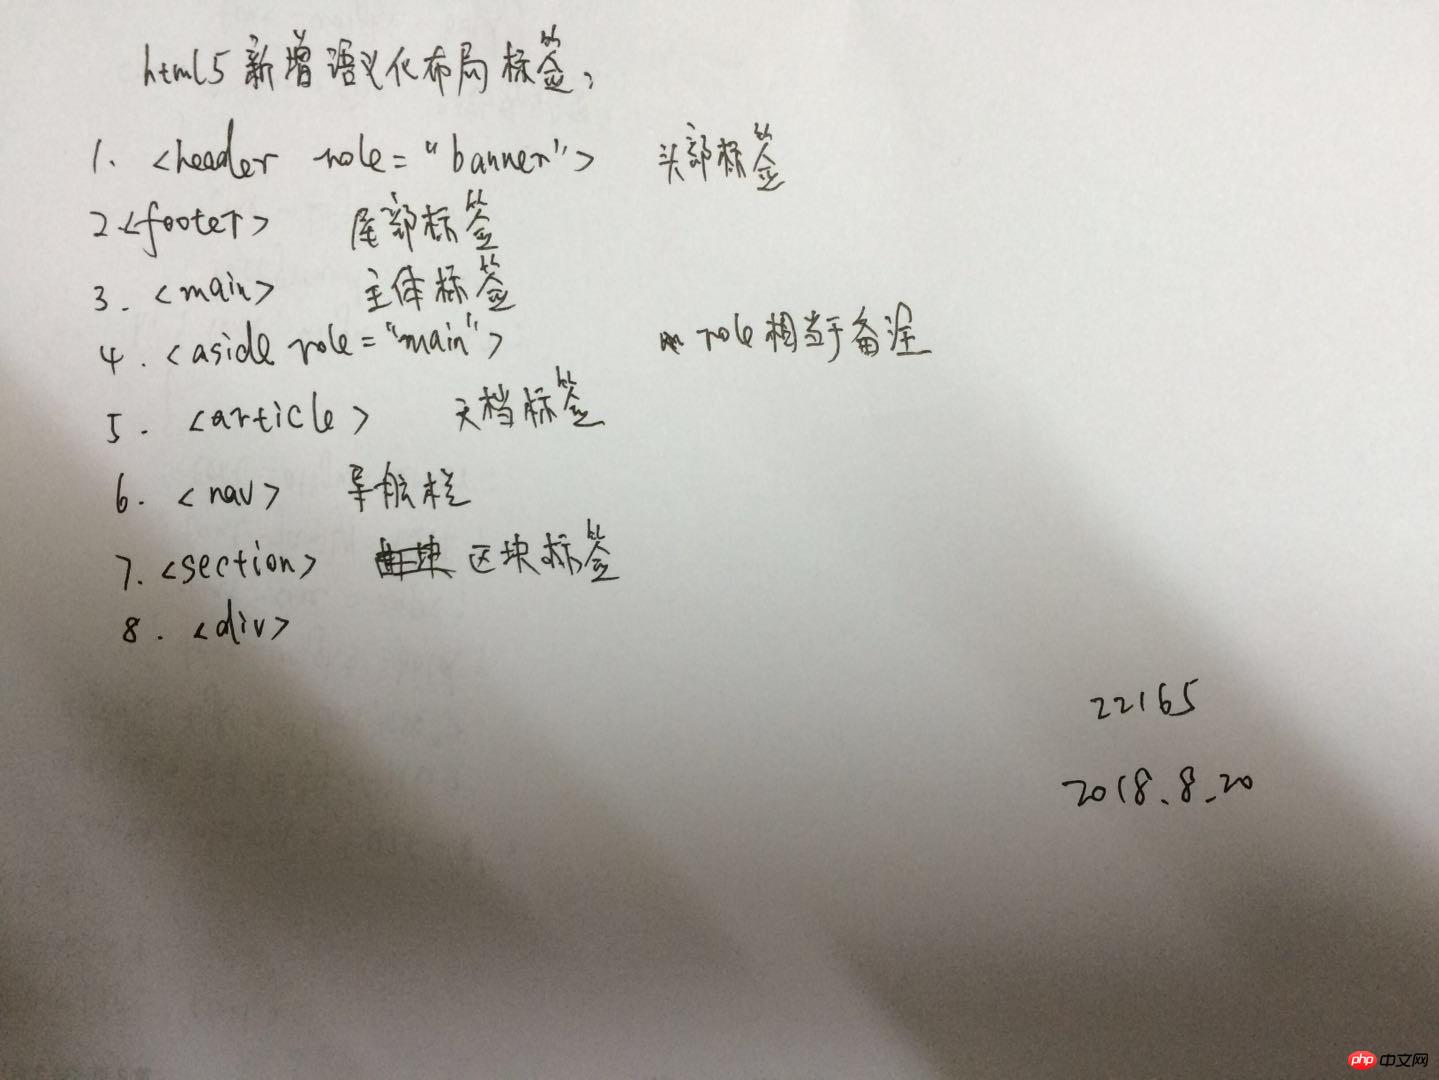 html5新增语义化布局标签:
1. <header role="banner"> 头部标签
2 <footer> 尾部标签
3. <main> 主体标签
4. <aside role="main"> role相当于备注
5. <article> 文档标签
6. <nav> 导航栏
7. <section> 区块标签
8. <div>
22165
2018.8.20
php 中文网